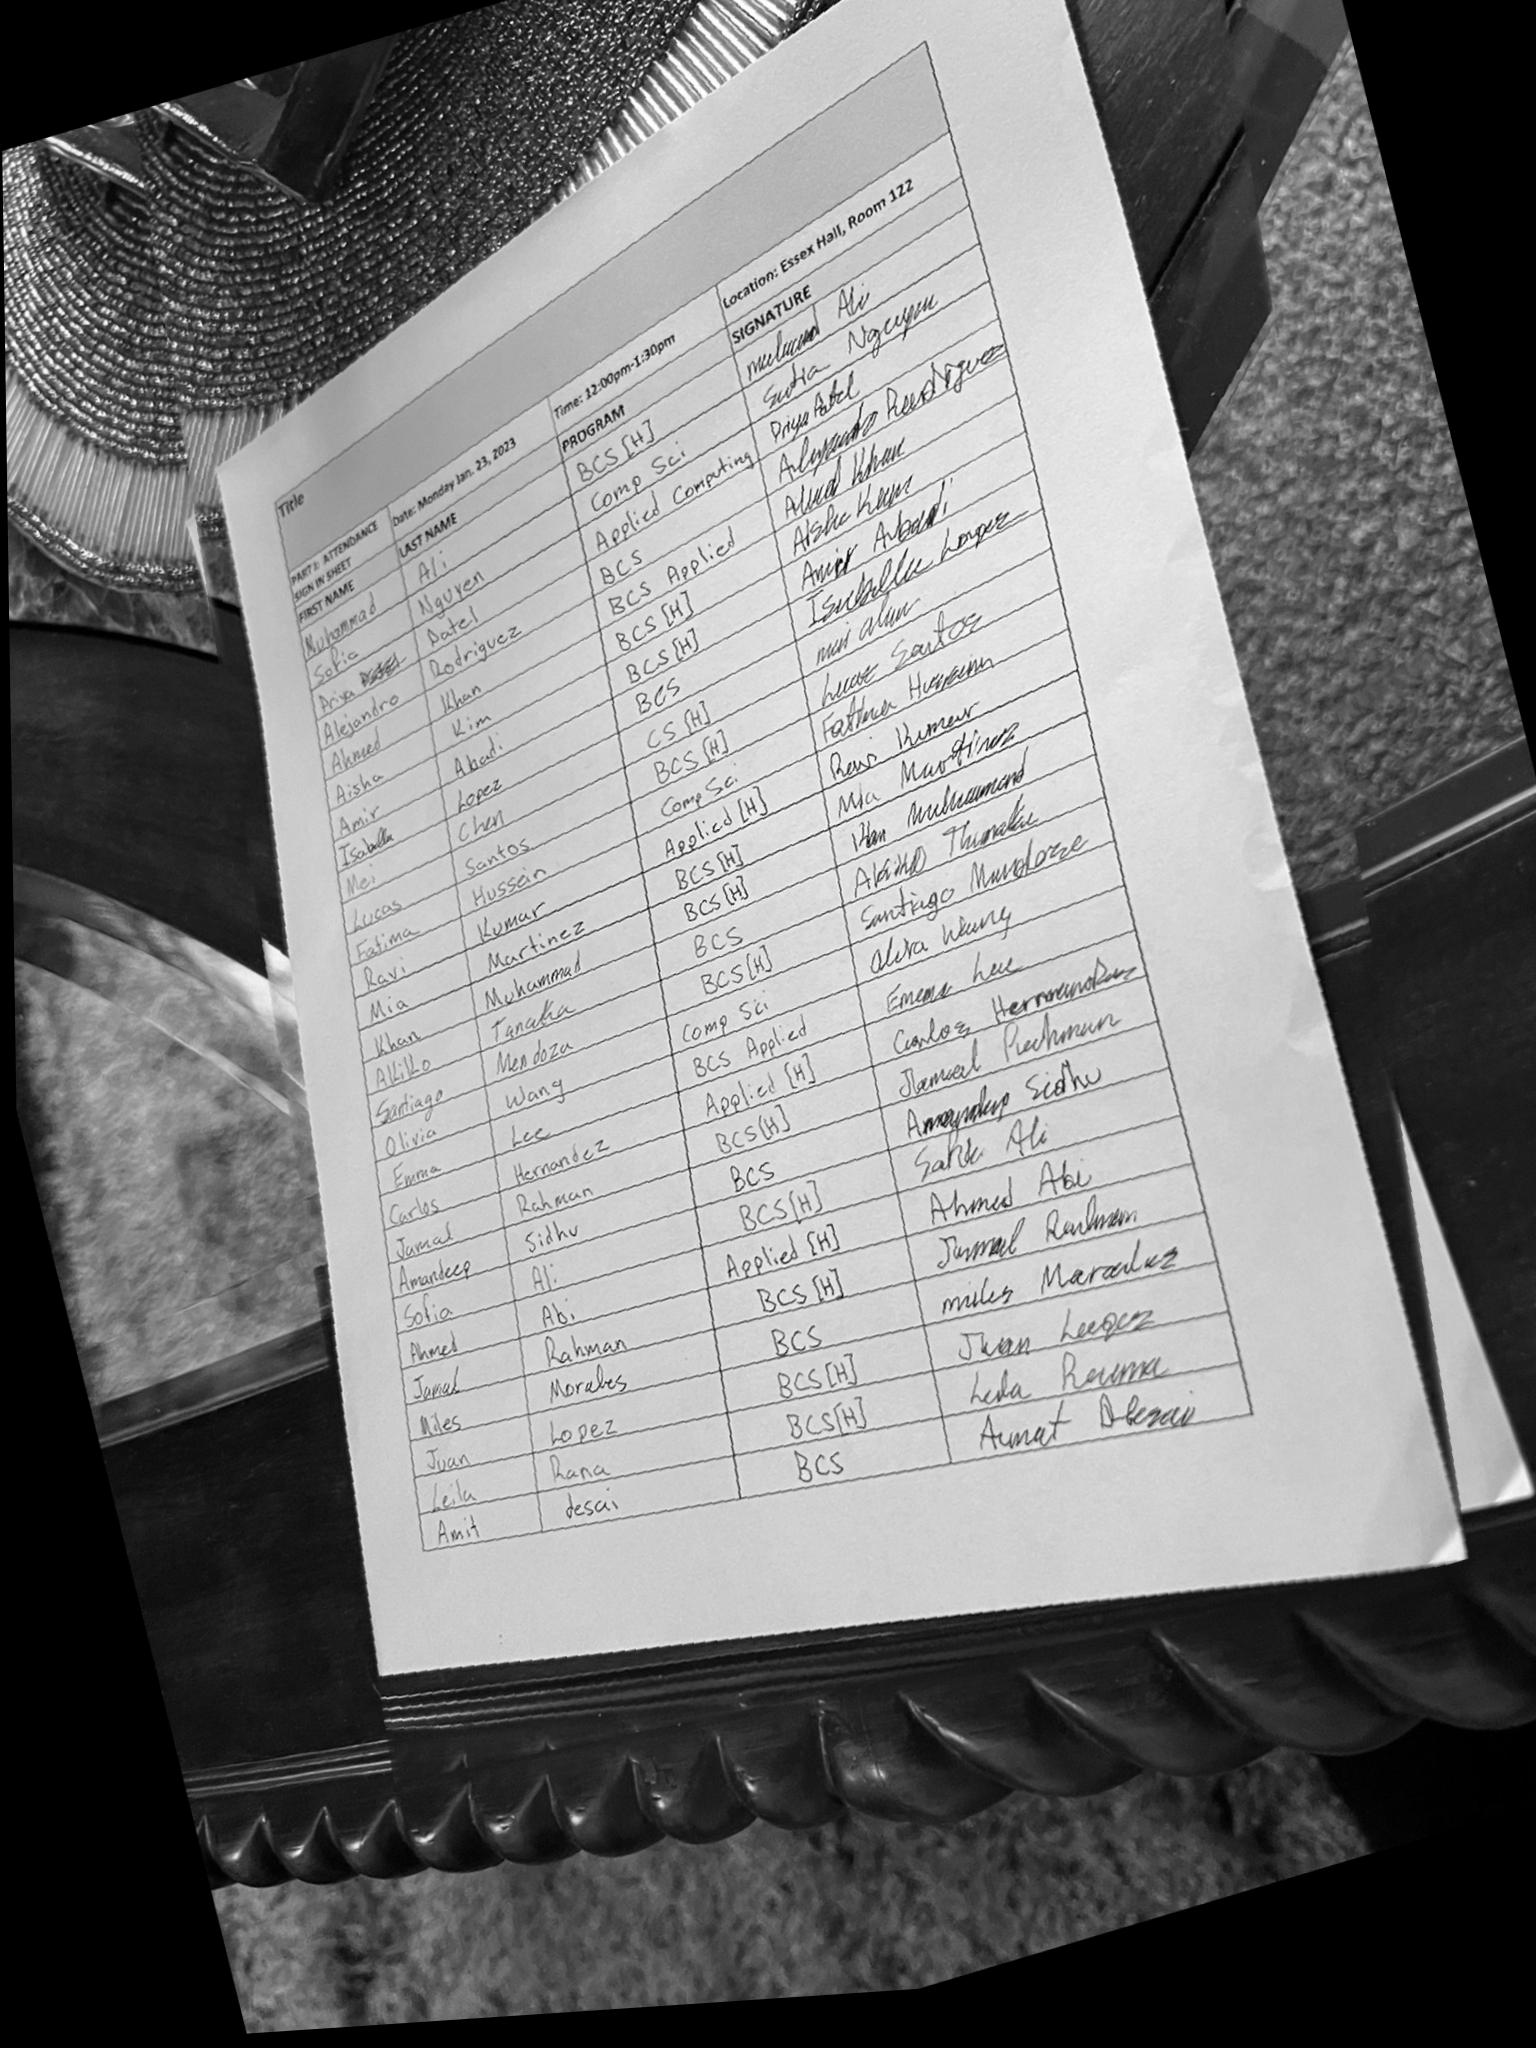 Title
PART I: ATTENDANCE SIGN IN SHEET Date: Monday Jan. 23, 2023 Time: 12:00pm-1:30pm Location: Essex Hall, Room 122
FIRST NAME LAST NAME PROGRAM SIGNATURE
Muhammad Ali BCS [H] Ali
Sofia Nguyen Comp Sci Sofia Nguyen
Priya Patel Applied Computing Priya Patel
Alejandro Rodriguez BCS Alejandro Rodriguez
Ahmed Khan BCS Applied Ahmed Khan
Aisha Kim BCS [H] Aisha Kim
Amir Abadi BCS [H] Amir Abadi
Isabella Lopez BCS Isabella Lopez
Mei Chen CS [H] mei chen
Lucas Santos BCS [H] Lucas Santos
Fatima Hussein Comp Sci Fatima Hussein
Ravi Kumar Applied [H] Ravi Kumar
Mia Martinez BCS [H] Mia Martinez
Khan Muhammad BCS [H] Khan Muhammad
Akiko Tanaka BCS Akiko
Santiago Mendoza BCS [H] Santiago Mendoza
Olivia Wang Comp Sci Wang
Emma Lee BCS Applied Emma Lee
Carlos Hernandez Applied [H] Carlos Hernandez
Jamal Rahman BCS [H] Jamal
Amandeep Sidhu BCS Amandeep Sidhu
Sofia Ali BCS [H] Ali
Ahmed Abi Applied [H] Ahmed Abi
Jamal Rahman BCS [H] Jamal Rahman
Miles Morales BCS miles
Juan Lopez BCS [H] Juan
Leila Rana BCS [H]
Amit desai BCS